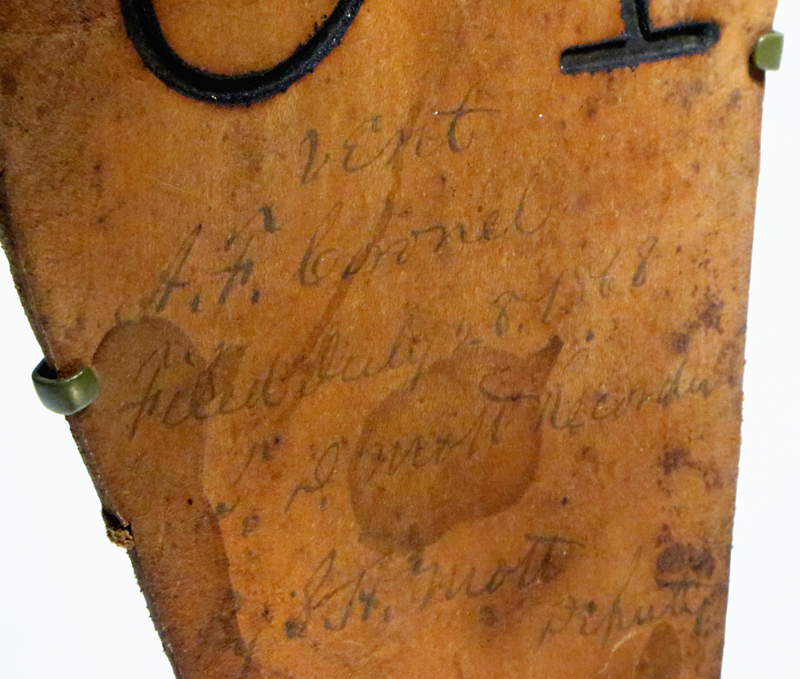 Vent
A. F. Coronel
Filed July 28. 1868
Mott Recorder
Mott
Deputy